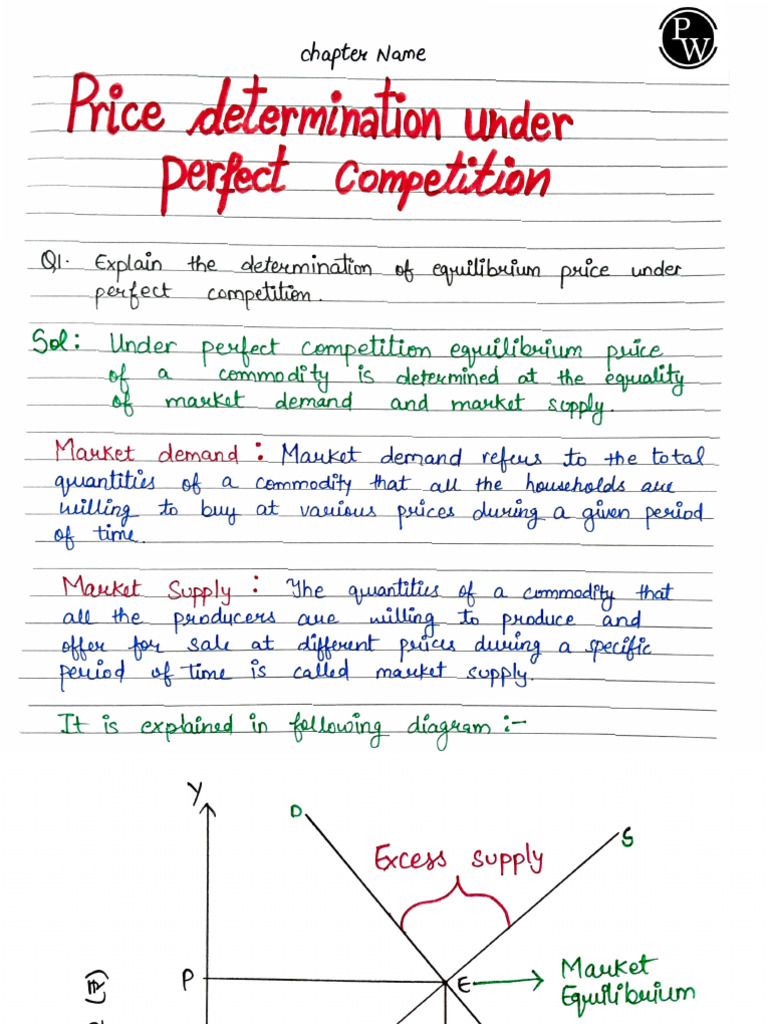 PW
Chapter Name
Price determination under
perfect competition
Q1. Explain the determination of equilibrium price under
perfect competition.
Sol: Under perfect competition equilibrium price
of a commodity is determined at the equality
of market demand and market supply.
Market demand: Market demand refers to the total
quantities of a commodity that all the households are
willing to buy at various prices during a given period
of time.
Market Supply: The quantities of a commodity that
all the producers are willing to produce and
offer for sale at different prices during a specific
period of time is called market supply.
It is explained in following diagram :-
Y
D
S
Excess supply
P
E
Market
Equilibrium
(₹)